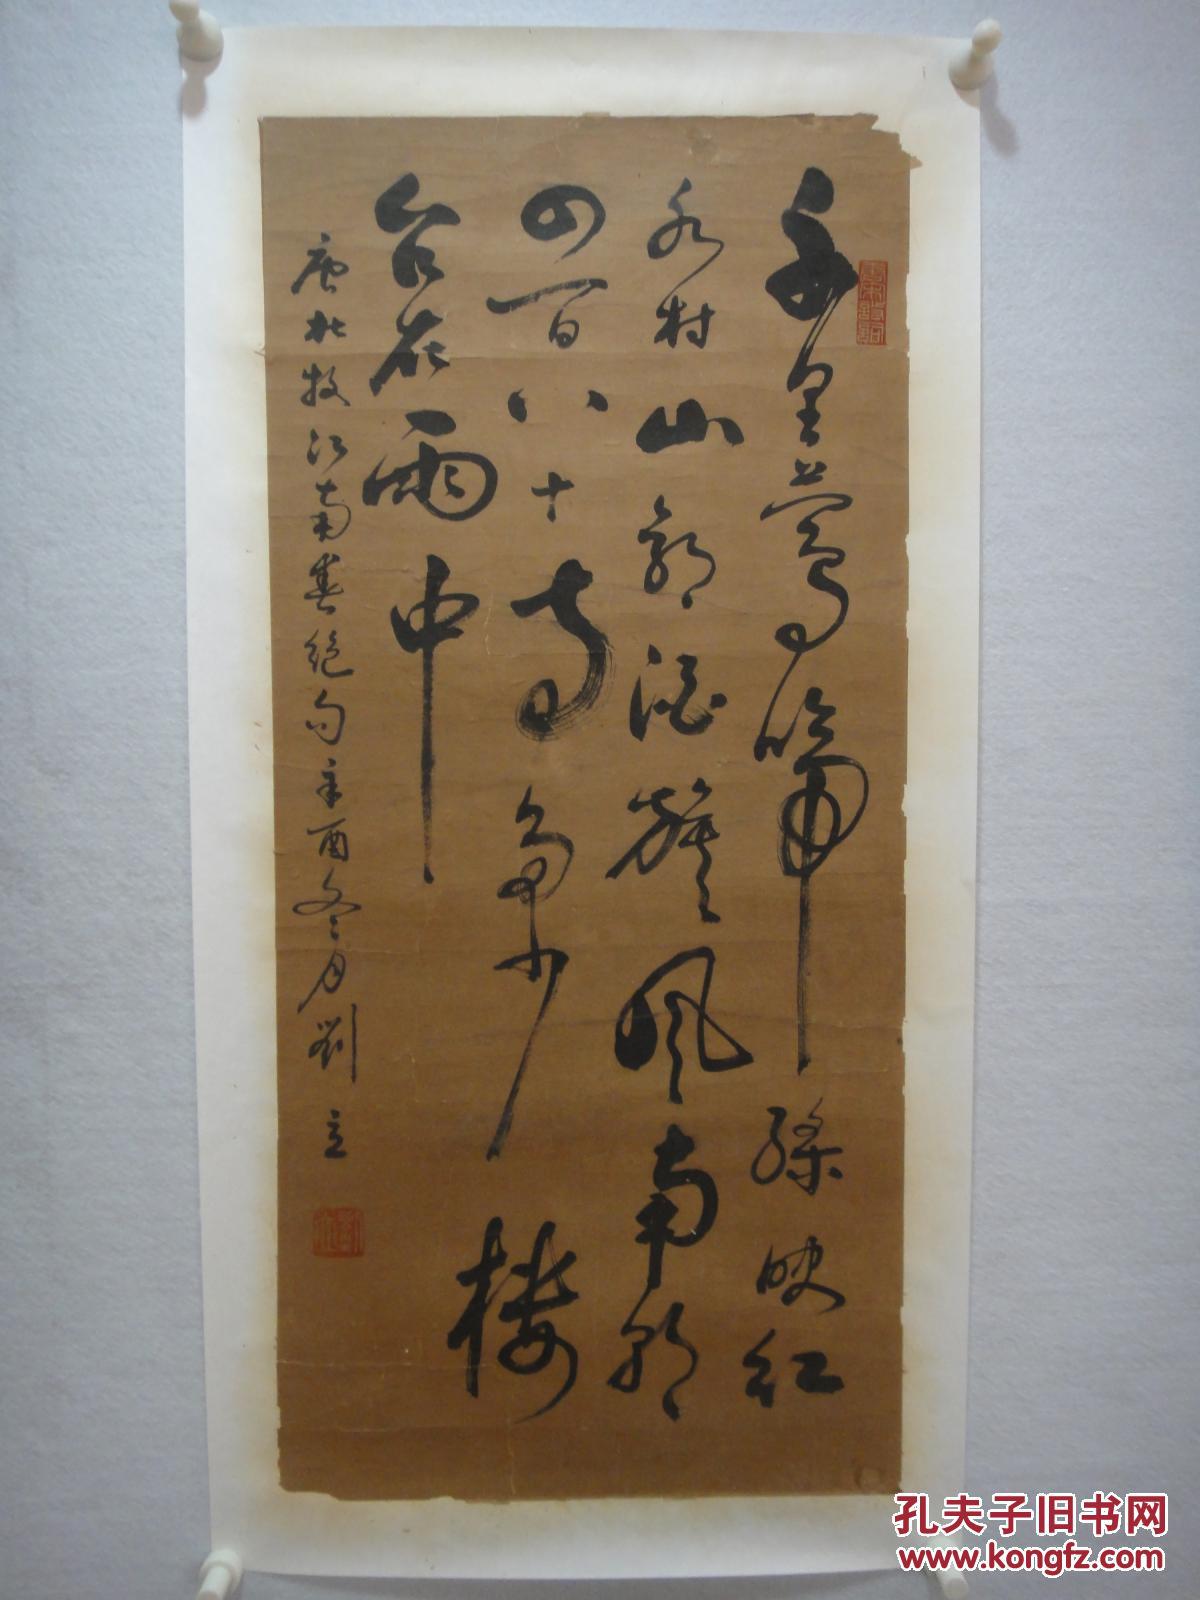 千里莺啼绿映红
水村山郭酒旗风南朝
四百八十寺多少楼
台烟雨中
唐杜牧江南春绝句辛酉冬月刘立
孔夫子旧书网
www.kongfz.com